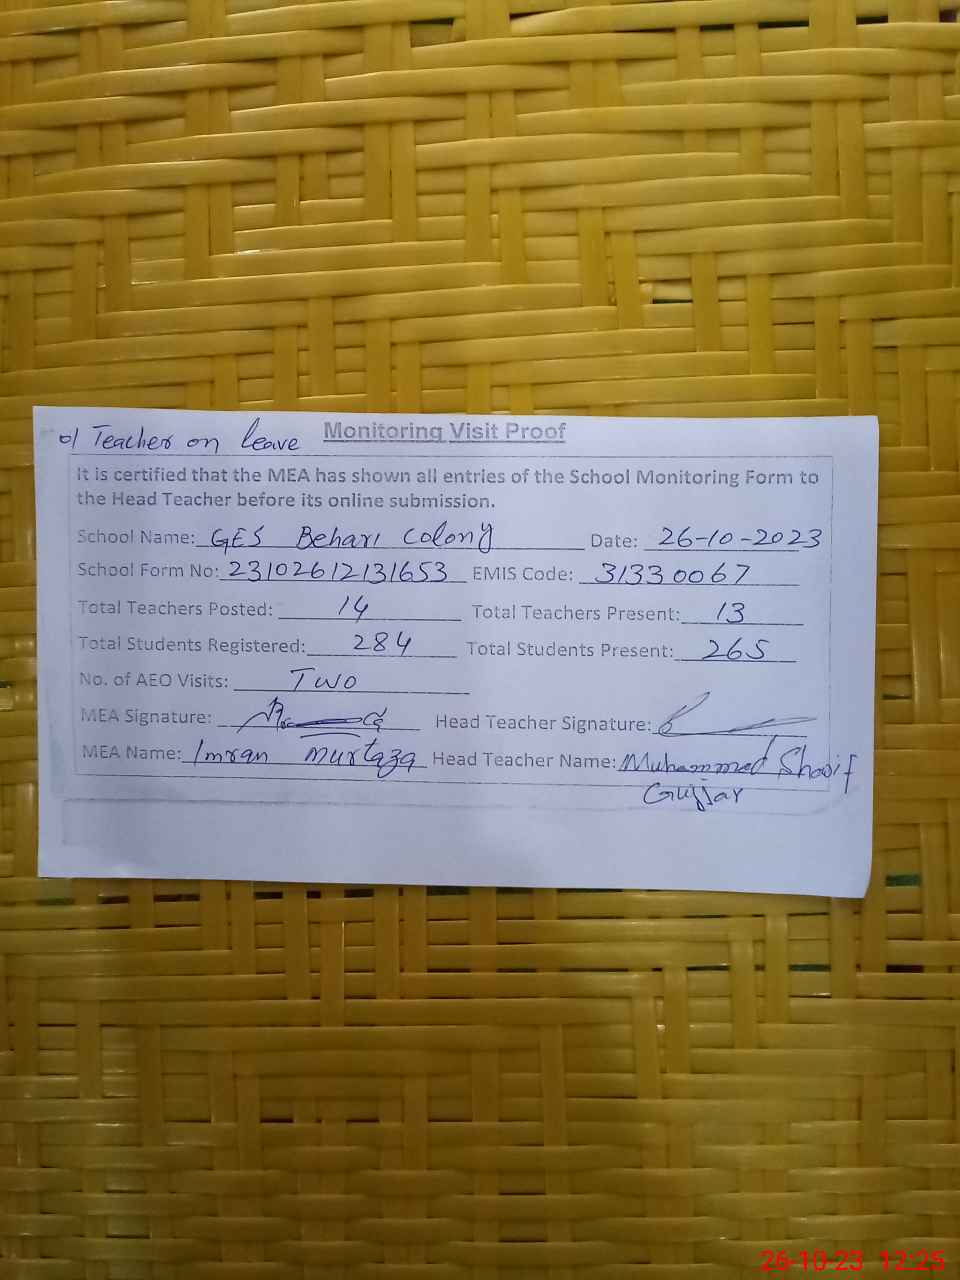 01 Teacher on leave Monitoring Visit Proof
It is certified that the MEA has shown all entries of the School Monitoring Form to
the Head Teacher before its online submission.
School Name: GES Behari Colony Date: 26-10-2023
School Form No: 23102612131653 EMIS Code: 31330067
Total Teachers Posted: 14 Total Teachers Present: 13
Total Students Registered: 284 Total Students Present: 265
No. of AEO Visits: Two
MEA Signature: Head Teacher Signature:
MEA Name: Imran murtaza Head Teacher Name: Muhammad Sharif
Gujjar
26-10-23 12:25